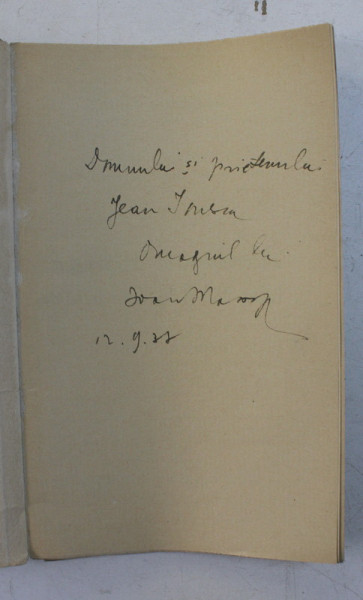 Domnului și prietenului
Jean Ionescu
Omagiul lui
Ioan Massoff
12.9.33